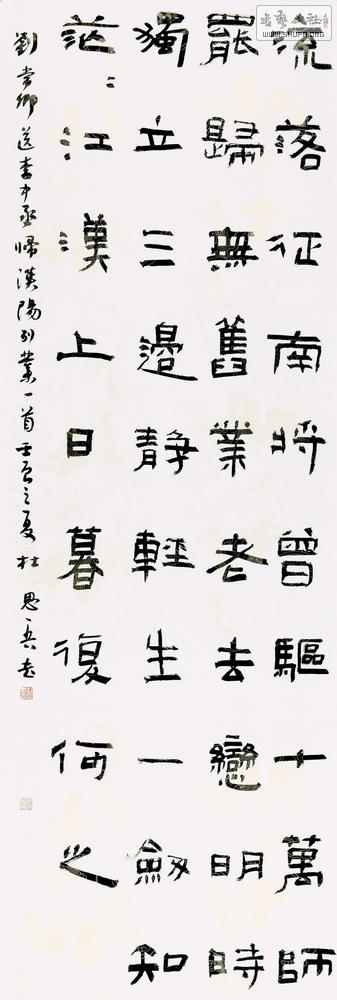 流落征南將曾驅十萬師
罷歸無舊業老去戀明時
獨立三邊靜輕生一劍知
茫〻江漢上日暮復何之
劉長卿送李中丞歸漢陽別業一首壬辰之夏杜思吾書
書藝公社
WWW.SHUFA.ORG